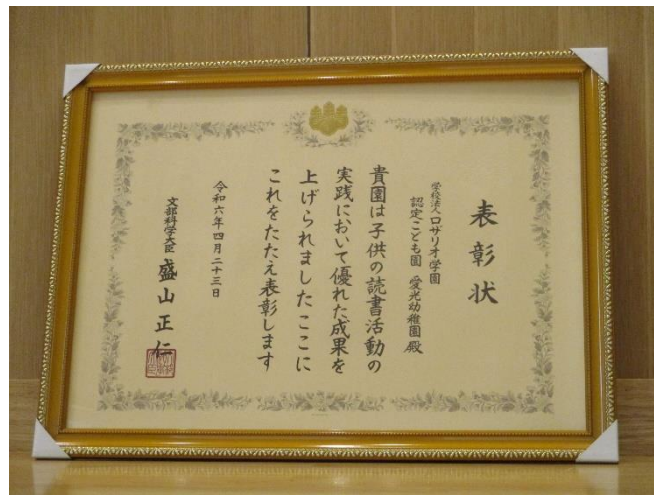 表彰状
学校法人ロザリオ学園
認定こども園 愛光幼稚園殿
貴園は子供の読書活動の
実践において優れた成果を
上げられましたここに
これをたたえ表彰します
令和六年四月二十三日
文部科学大臣 盛山正仁